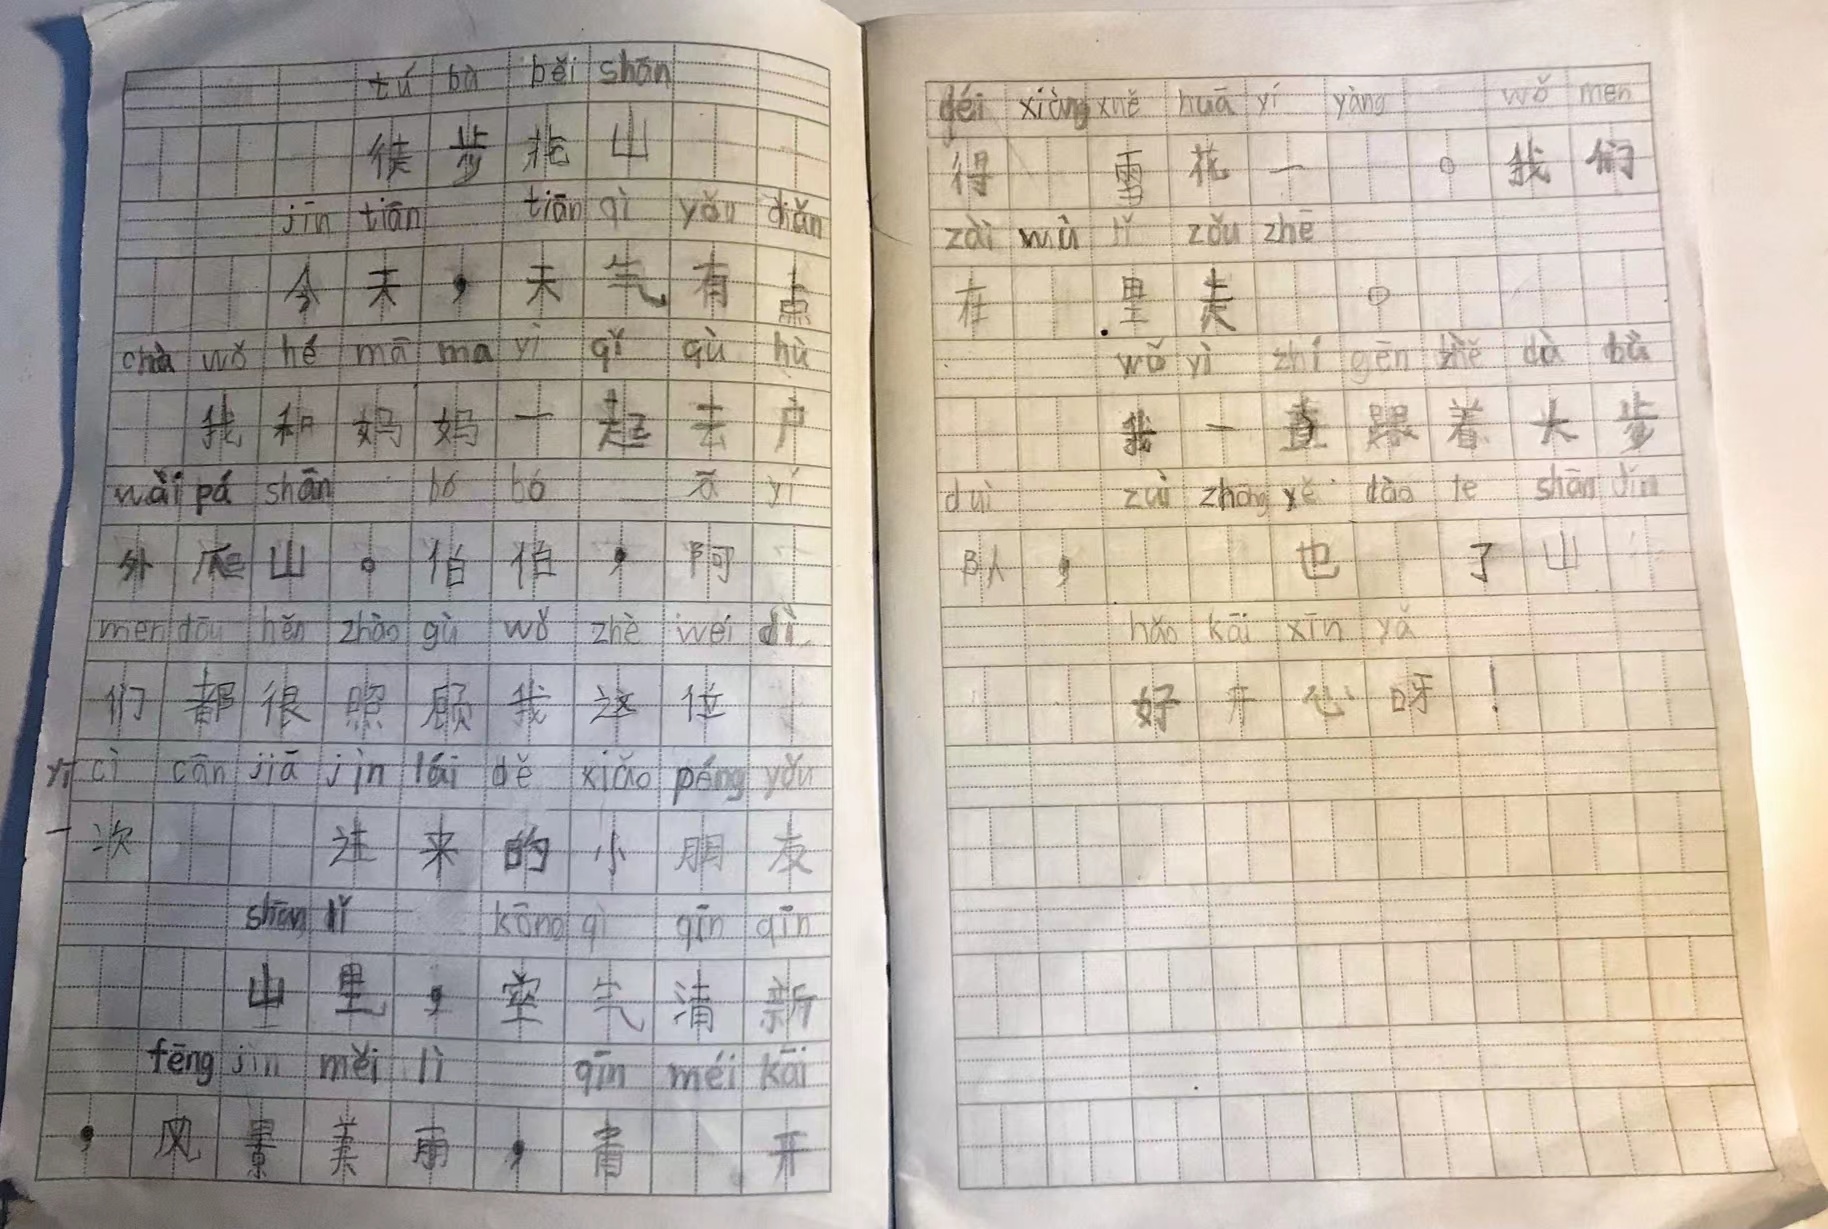 tú bù běi shān
徒步北山
jīn tiān tiān qì yǒu diǎn
今天，天气有点
wǒ hé mā ma yì qǐ qù hù
我和妈妈一起去户
wài pá shān bó bó ā yí
外爬山。伯伯，阿
men dōu hěn zhào gù wǒ zhè wèi dì
们都很照顾我这位
yī cì cān jiā jìn lái dě xiǎo péng yǒu
一次 进来的小朋友
shān lǐ kōng qì qīn qīn
山里，空气清新
fēng jǐn měi lì qīn méi kāi
，风景美丽，青 开
déi xiàng xuě huā yí yàng wǒ men
得 雪花一 。我们
zài wù lǐ zǒu zhē
在 里走 。
wǒ yì zhí gēn zhě dà bù
我一直跟着大步
duì zuì zhōng yě dào le shān dǐn
队， 也 了山
hǎo kāi xīn yǎ
好开心呀！